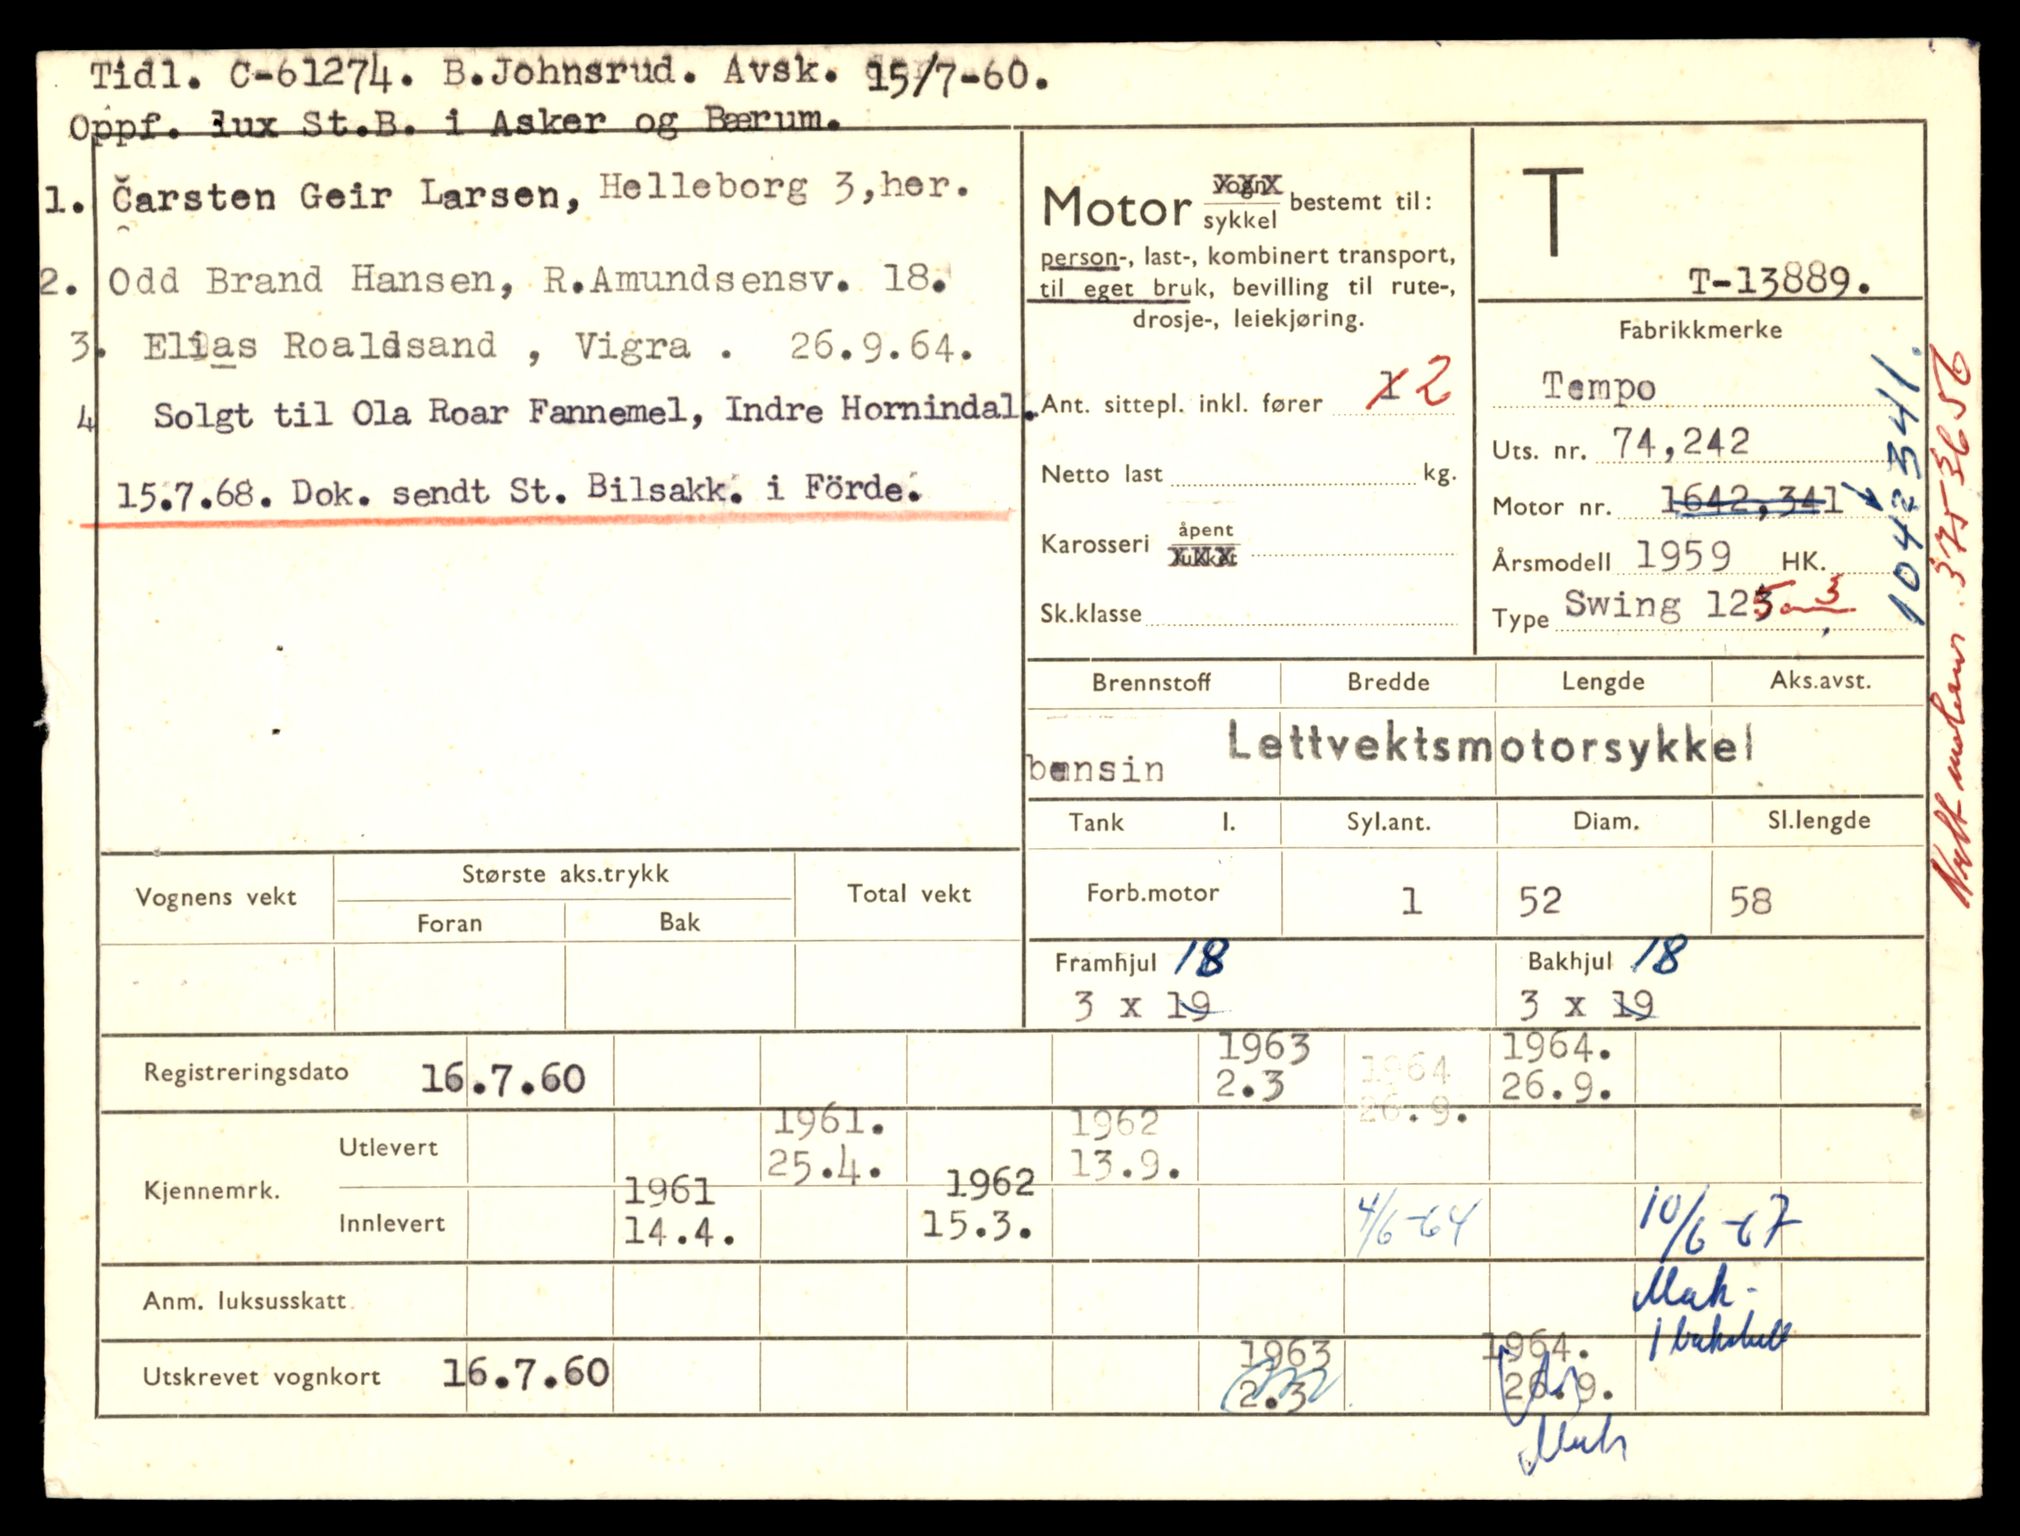 Tidl. C-61274. B.Johnsrud. Avsk. 15/7-60.
Oppf. lux St.B. i Asker og Bærum.
1. Carsten Geir Larsen, Helleborg 3,her.
2. Odd Brand Hansen, R.Amundsensv. 18.
3. Elias Roaldsand , Vigra . 26.9.64.
4 Solgt til Ola Roar Fannemel, Indre Hornindal.
15.7.68. Dok. sendt St. Bilsakk. i Förde.
Motor vogn sykkel bestemt til:
person-, last-, kombinert transport,
til eget bruk, bevilling til rute-,
drosje-, leiekjøring.
Ant. sittepl. inkl. fører 1 2
Netto last kg.
Karosseri åpent lukket
Sk.klasse
T
T-13889.
Fabrikkmerke
Tempo
Uts. nr. 74,242
Motor nr. 1642,341
1042341.
Årsmodell 1959 HK.
Type Swing 125 3
375 36 56
Brennstoff Bredde Lengde Aks.avst.
bensin Lettvektsmotorsykkel
Tank l. Syl.ant. Diam. Sl.lengde
Forb.motor 1 52 58
Framhjul 18 Bakhjul 18
3 x 19 3 x 19
Vognens vekt Største aks.trykk Total vekt
Foran Bak
Registreringsdato 16.7.60 1963 2.3 1964 26.9. 1964. 26.9.
Kjennemrk. Utlevert 1961. 25.4. 1962 13.9.
Innlevert 1961 14.4. 1962 15.3. 4/6-64 10/6-67
Anm. luksusskatt
Utskrevet vognkort 16.7.60 1963 2.3 1964. 26.9.